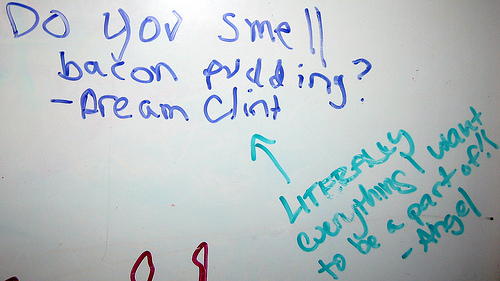 Do you smell
bacon pudding?
-Dream Clint
LITERALLY
everything I want
to be a part of!!
- Angel